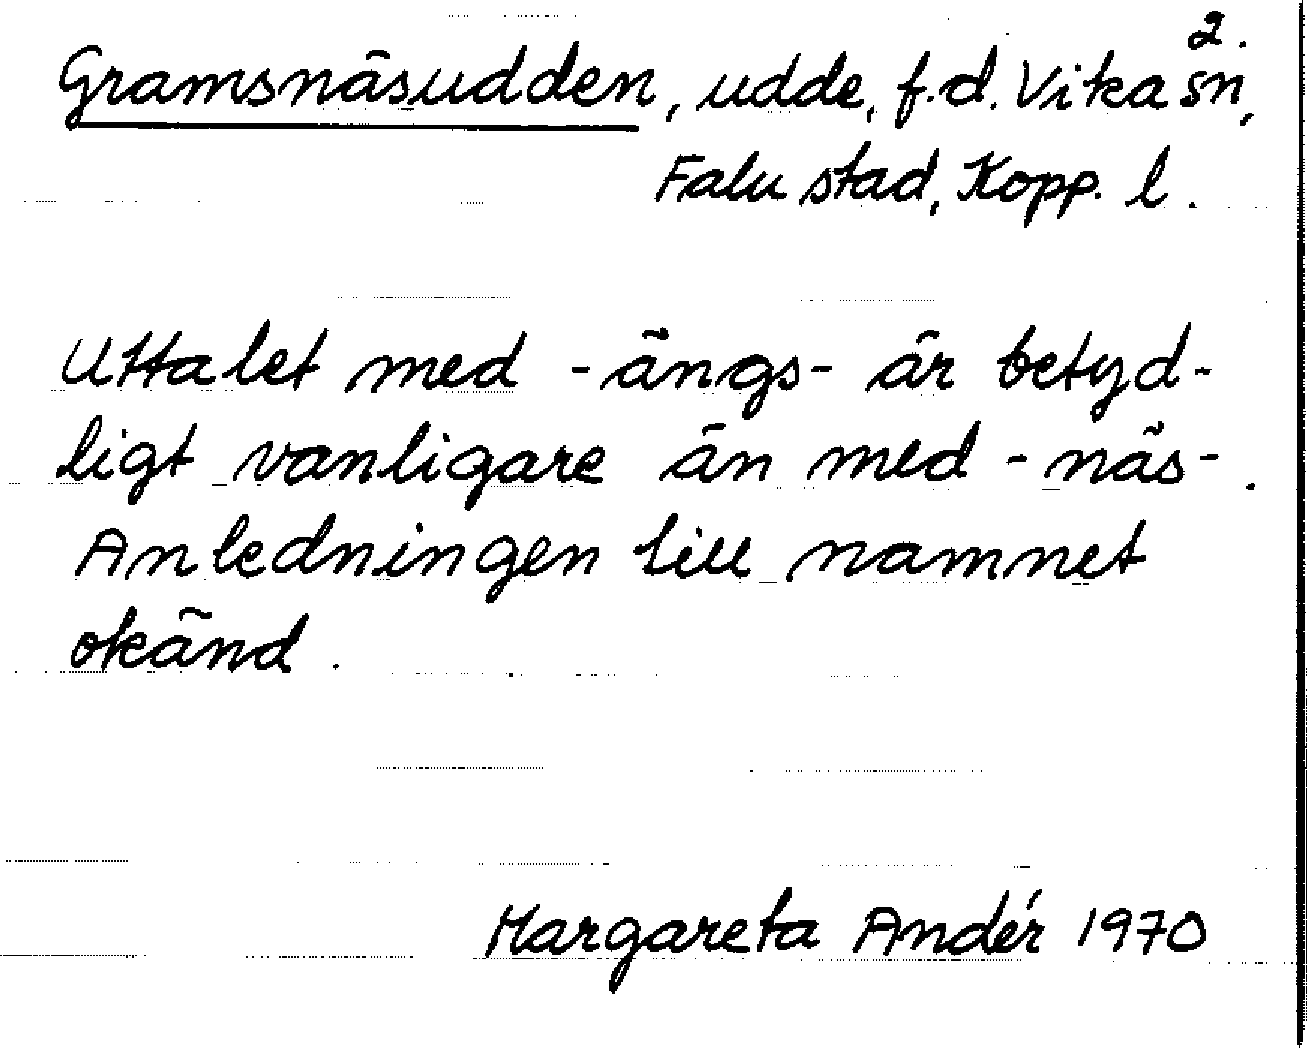 2.
Gramsnäsudden, udde, f.d. Vika sn,
Falu stad, Kopp. l.
Uttalet med -ängs- är betyd-
ligt vanligare än med -näs-.
Anledningen till namnet
okänd.
Margareta Andér 1970